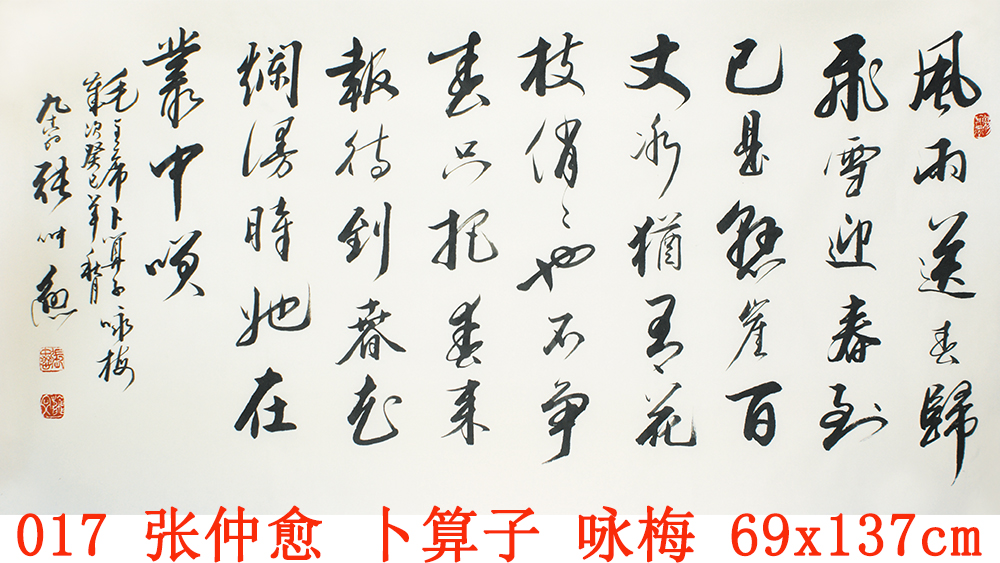 風雨送春歸
飛雪迎春到
已是懸崖百
丈冰猶有花
枝俏〻也不争
春只把春来
報待到春花
爛漫時她在
叢中咲
毛主席卜算子咏梅
歲次癸巳年秋月
張仲愈
017 张仲愈 卜算子 咏梅 69x137cm